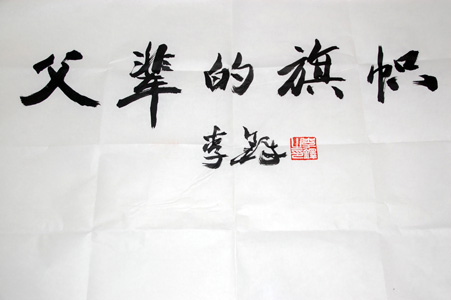 父辈的旗帜
李铎